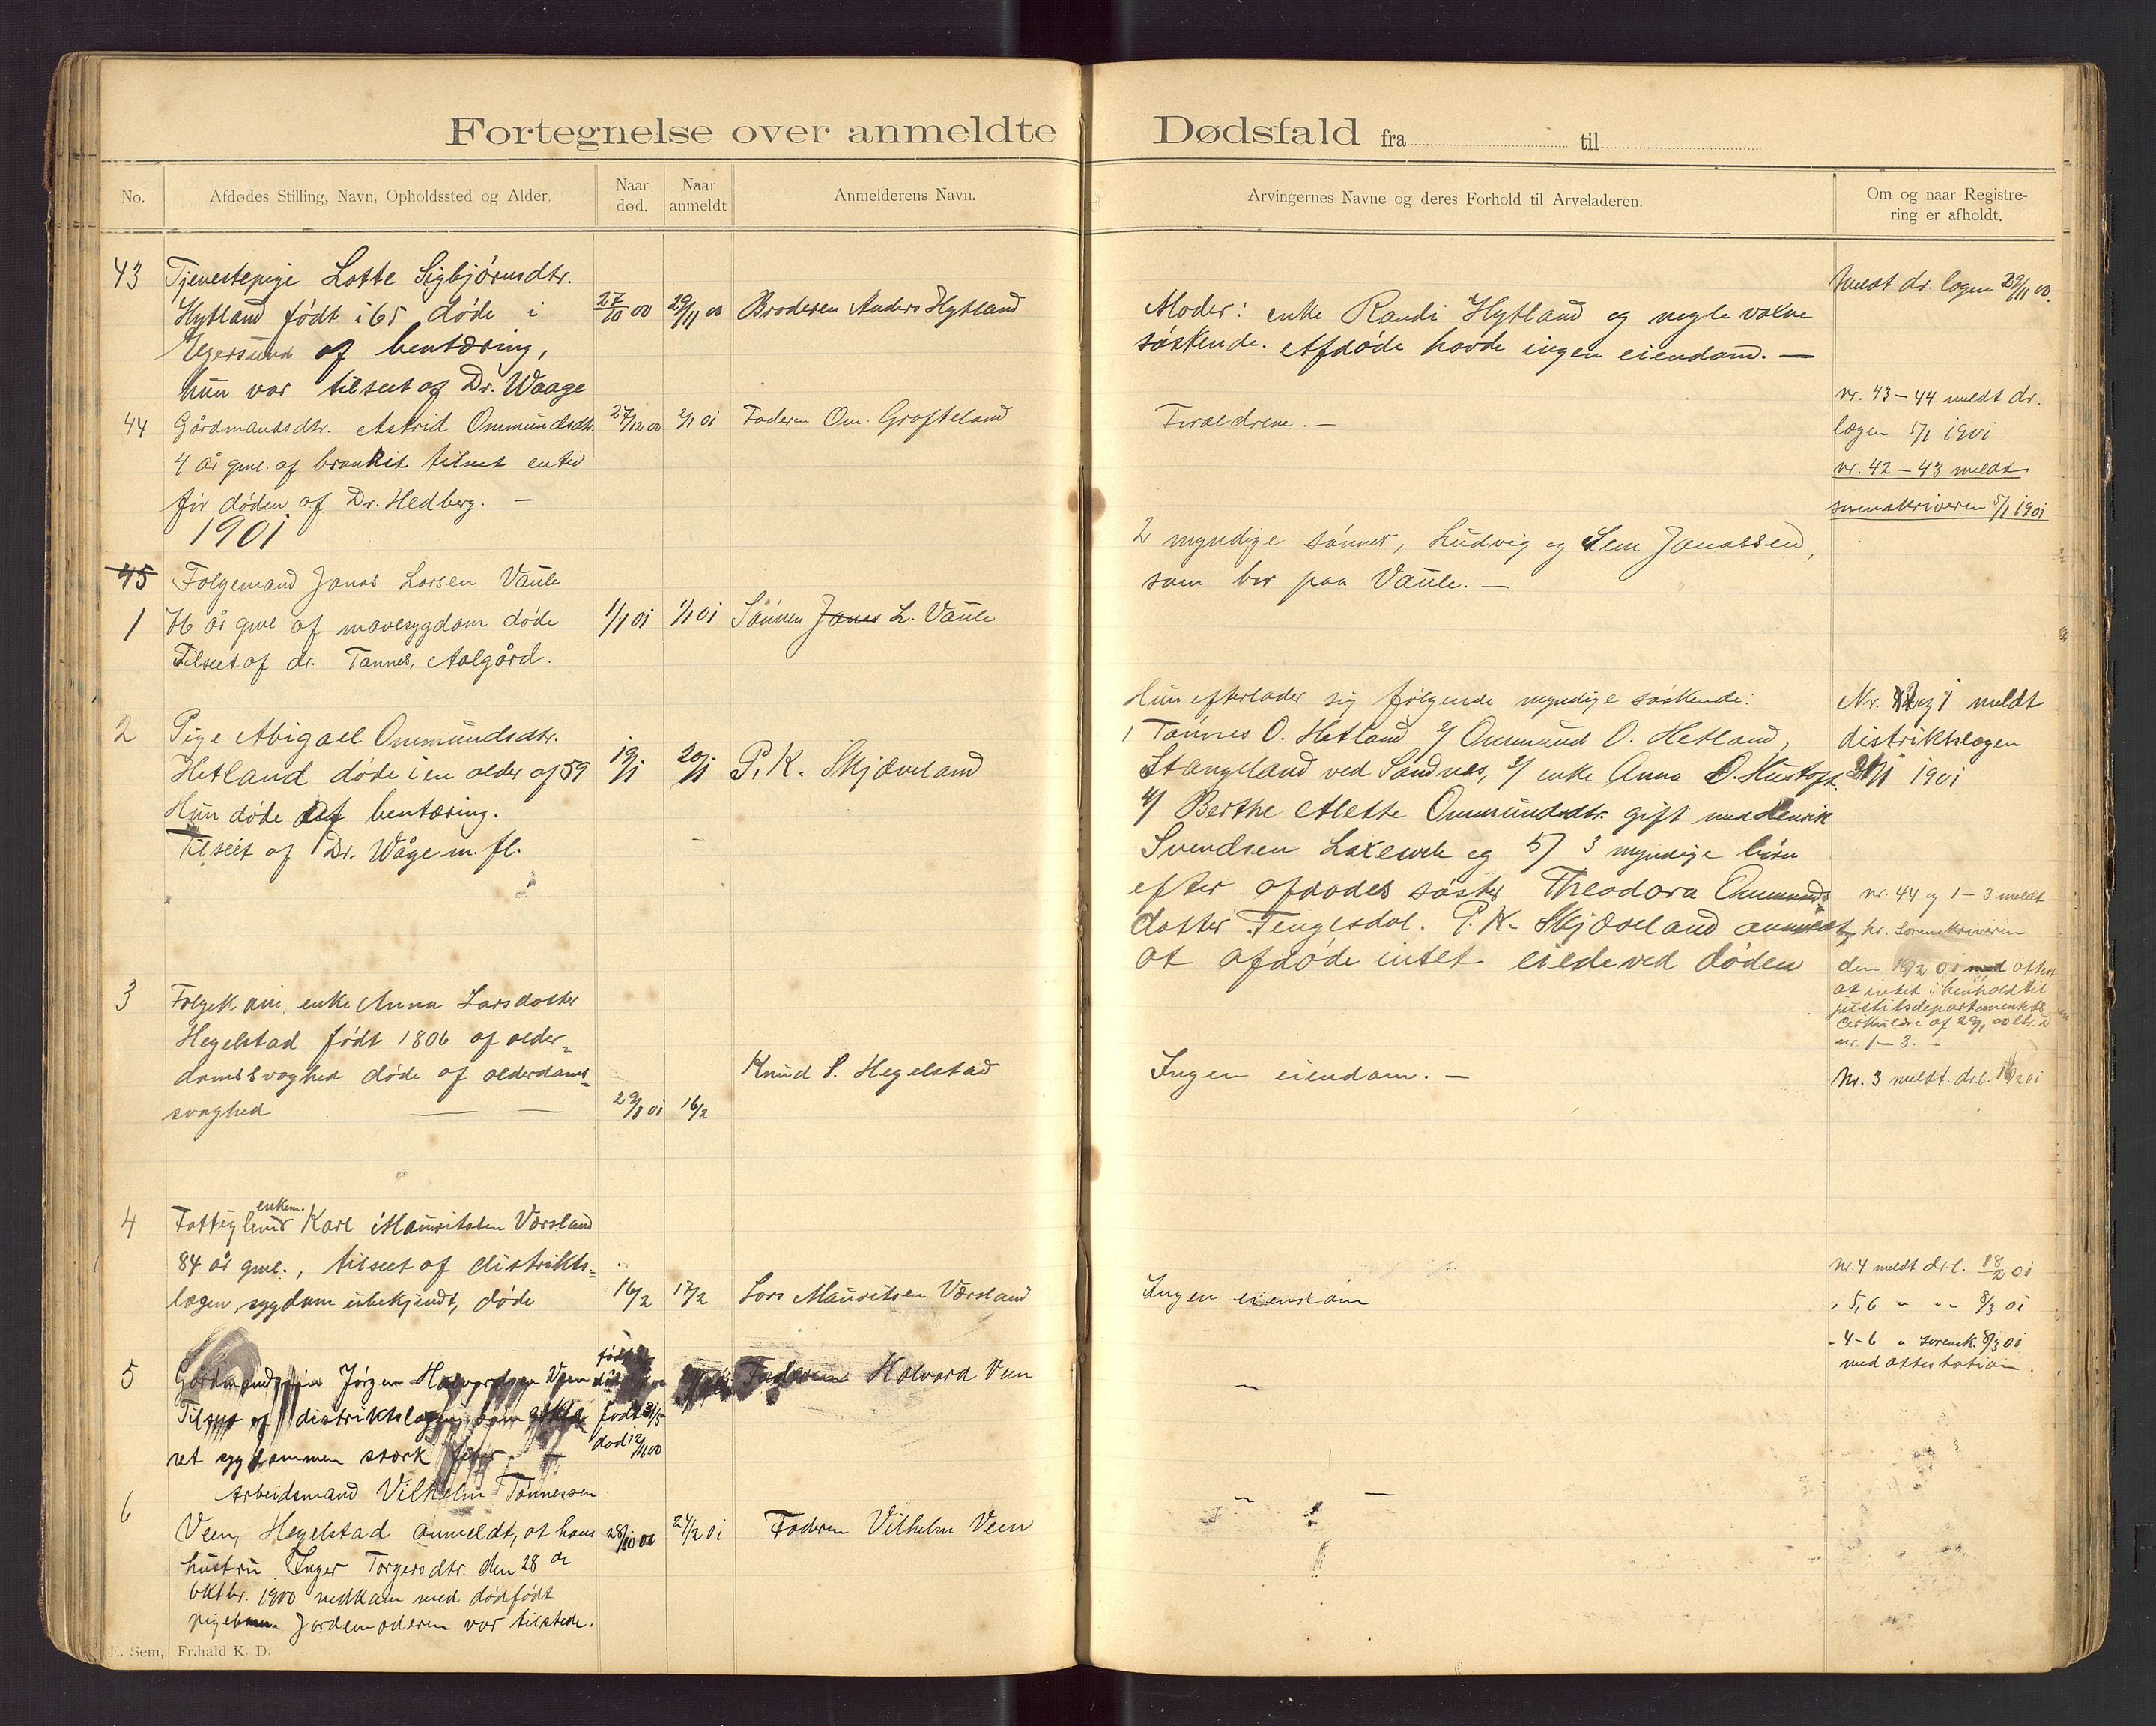 Fortegnelse over anmeldte Dødsfald fra til
No.
Afdødes Stilling, Navn, Opholdssted og Alder.
Naar
død.
Naar
anmeldt
Anmelderens Navn.
Arvingernes Navne og deres Forhold til Arveladeren.
Om og naar Registre-
ring er afholdt.
43
Tjenestepige Lotte Sigbjörnsdtr.
Hytland født i 65 døde i
Egersund af bentæring,
hun var tilseet af Dr. Waage
27/10 00
29/11 00
Broderen Anders Hytland
Moder: enke Randi Hytland og nogle voxne
søskende. Afdøde havde ingen eiendom. —
meldt dr. lægen 29/11 00.
44
Gårdmandsdtr. Astrid Ommundsdtr.
4 år gml. af bronkit tilseet en tid
før døden af Dr. Hedberg. —
27/12 00
2/1 01
Faderen Om. Grofteland
Forældrene. —
nr. 43 – 44 meldt dr.
lægen 5/1 1901
nr. 42 – 43 meldt
sorenskriveren 5/1 1901
1901
45
1
Folgemand Jonas Larsen Vaule
76 år gml af mavesygdom døde
Tilseet af dr. Tannes, Aalgård.
1/1 01
1/1 01
Sönnen Jonas L. Vaule
2 myndige sönner, Ludvig og Sem Jonassen,
som bor paa Vaule. —
2
Pige Abigael Ommundsdtr.
Hetland døde i en alder af 59
Hun døde af bentæring.
Tilseet af Dr. Wåge m. fl.
19/1
20/1
P. K. Skjæveland
Hun efterlader sig følgende myndige søskende:
1 Tönnes O. Hetland 2/ Ommund O. Hetland,
Stangeland ved Sandnes, 3/ enke Anna O.
4/ Berthe Mette Ommundsdtr. gift med Henrik
Svendsen og 5/ 3 myndige börn
efter afdødes søster Theodora Ommunds
datter Tengesdal. P. K. Skjæveland anmeldt
at afdøde intet eiede ved døden
Nr. og 1 meldt
distriktslægen
21/1 1901
nr. 44 og 1 – 3 meldt
hr. Sorenskriveren
den 16/2 01 med attest
at intet i henhold til
justitsdepartementets
cirkulære af
nr. 1 – 3. —
Nr. 3 meldt dr.l. 16/2 01
3
Folgekone, enke Anna Larsdatter
Hegelstad født 1806 af alder-
domssvaghed døde af alderdoms-
svaghed
29/1 01
16/2
Knud S. Hegelstad
Ingen eiendom. —
4
Fattiglem enkem. Karl Mauritsen Værsland
84 år gml., tilseet af distrikts-
lægen, sygdom ubekjendt, døde
16/2
17/2
Lars Mauritsen Værsland
Ingen eiendom
nr. 4 meldt dr.l. 18/2 01
" 5, 6 " " " 8/3 01
" 4–6 " sorensk. 8/3 01
med attestation.
5
Gårdmandssön Jørgen Halvorsen Veen
Tilseet af distriktslægen, som
ret sygdommen stærk feber. —
født 31/5
død 12/11 00
Faderen Halvard Veen
—
6
Arbeidsmand Vilhelm Tönnessen
Veen, Hegelstad anmeldt, at hans
hustru Inger Torgersdtr. den 28 de
oktbr. 1900 nedkam med dødfødt
pigebarn. Jordemoderen var tilstede.
28/10 00
27/2 01
Faderen Vilhelm Veen
— —
E. Sem, Fr.hald K. D.